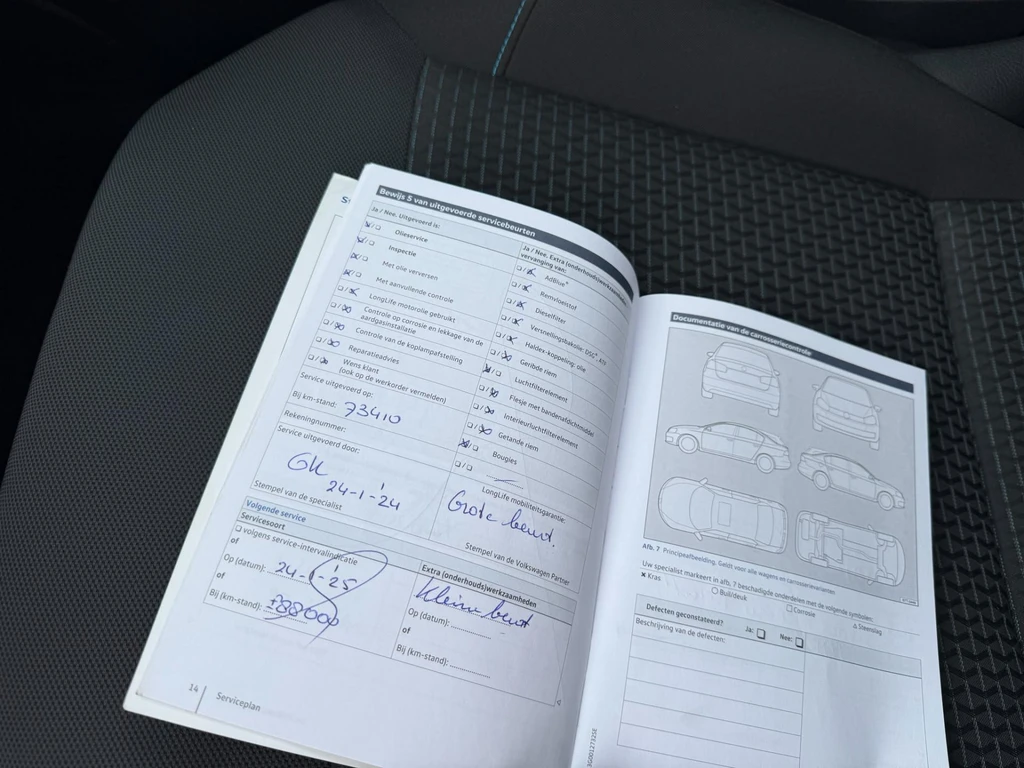 Bewijs 5 van uitgevoerde servicebeurten
Ja / Nee. Uitgevoerd is:
Olieservice
Inspectie
Met olie verversen
Met aanvullende controle
LongLife motorolie gebruikt
Controle op corrosie en lekkage van de
aardgasinstallatie
Controle van de koplampafstelling
Reparatieadvies
Wens klant
(ook op de werkorder vermelden)
Service uitgevoerd op:
Bij km-stand: 73410
Rekeningnummer:
Service uitgevoerd door:
GK
24-1-'24
Stempel van de specialist
Ja / Nee. Extra (onderhouds)werkzaamheden
vervanging van:
AdBlue®
Remvloeistof
Dieselfilter
Versnellingsbakolie: DSG®,
Haldex-koppeling: olie
Geribde riem
Luchtfilterelement
Flesje met bandenafdichtmiddel
Interieurluchtfilterelement
Getande riem
Bougies
LongLife mobiliteitsgarantie:
Grote beurt.
Stempel van de Volkswagen Partner
Volgende service
Servicesoort
volgens service-intervalindicatie
of
Op (datum): 24-1-'25
of
Bij (km-stand): ±88000
Extra (onderhouds)werkzaamheden
Kleine beurt
Op (datum):
of
Bij (km-stand):
14 Serviceplan
Documentatie van de carrosseriecontrole
Afb. 7 Principeafbeelding. Geldt voor alle wagens en carrosserievarianten
Uw specialist markeert in afb. 7 beschadigde onderdelen met de volgende symbolen:
× Kras
Buil/deuk
Corrosie
Steenslag
Defecten geconstateerd?
Ja:
Nee:
Beschrijving van de defecten: